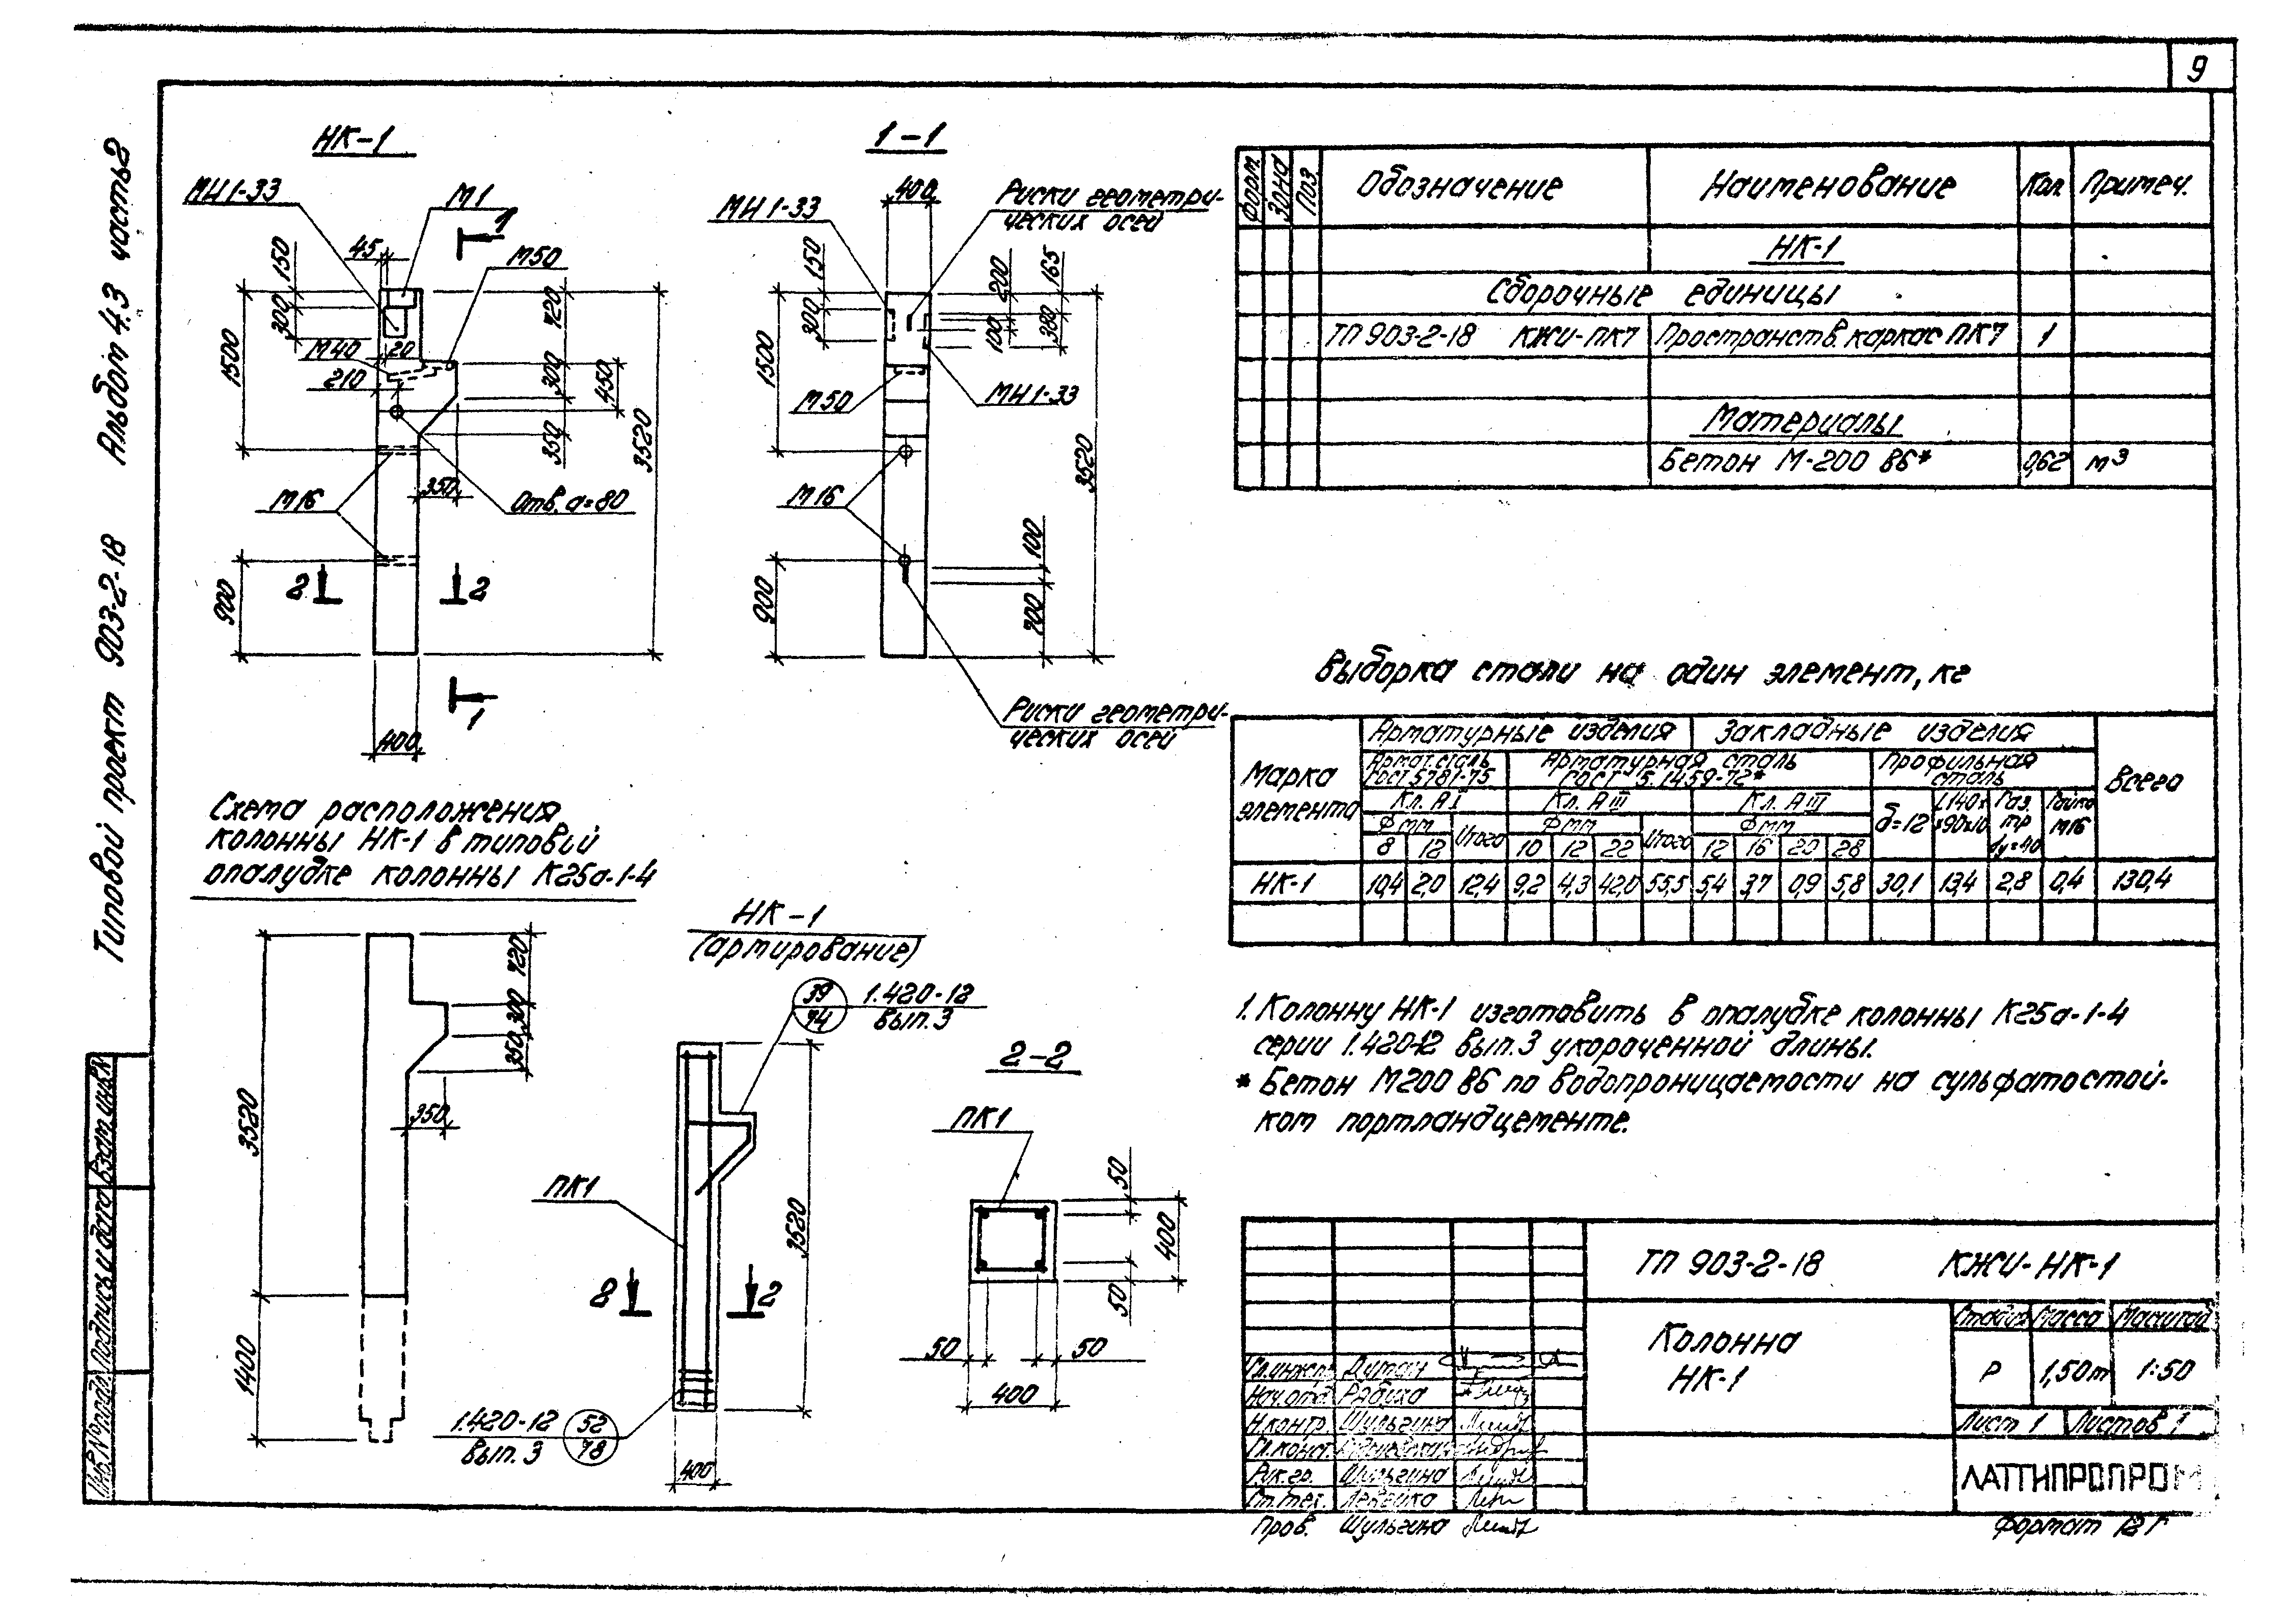 9
Альбом 4.3 часть 2
Типовой проект 903-2-18
НК-1
МН1-33
М1
1
45
М50
150
300
1500
М40
20
210
720
300
350
450
3520
350
М16
Отв. d=80
900
2
2
1
400
1-1
400
МН1-33
Риски геометри-
ческих осей
150
300
1500
200
100
165
380
МН1-33
М50
М16
3520
900
100
700
Риски геометри-
ческих осей
Форм.
Зона
Поз.
Обозначение
Наименование
Кол.
Примеч.
НК-1
Сборочные единицы
ТП 903-2-18 КЖИ-ПК7 Пространств. каркас ПК7 1
Материалы
Бетон М-200 В6* 0,62 м3
Выборка стали на один элемент, кг
Марка элемента
Арматурные изделия
Закладные изделия
Всего
Армат. сталь ГОСТ 5781-75
Арматурная сталь ГОСТ 5.1459-72*
Профильная сталь
Кл. А I
Кл. А III
Кл. А III
δ=12
L140х х90х10
Газ. тр dу=40
Гайка М16
Ф мм Итого Ф мм Итого Ф мм
8 12 10 12 22 12 16 20 28
НК-1 10,4 2,0 12,4 9,2 4,3 42,0 55,5 5,4 3,7 0,9 5,8 30,1 13,4 2,8 0,4 130,4
Схема расположения
колонны НК-1 в типовой
опалубке колонны К25а-1-4
3520
1400
720
300
350
350
НК-1
(армирование)
39
74
1.420-12
вып. 3
ПК1
3520
2
2
1.420-12
вып. 3
52
78
400
2-2
ПК1
50
400
50
50
50
400
1. Колонну НК-1 изготовить в опалубке колонны К25а-1-4
серии 1.420-12 вып. 3 укороченной длины.
* Бетон М200 В6 по водопроницаемости на сульфатостой-
ком портландцементе.
ТП 903-2-18 КЖИ-НК-1
Колонна
НК-1
Стадия Масса Масштаб
Р 1,50т 1:50
Лист 1 Листов 1
ЛАТГИПРОПРОМ
Гл.инж.пр. Дитан
Нач.отд. Рябиха
Н.контр. Шульгина
Гл.конст.
Рук.гр. Шульгина
Ст.тех.
Пров. Шульгина
Формат 12Г
Инв.№подл. Подпись и дата Взам.инв.№